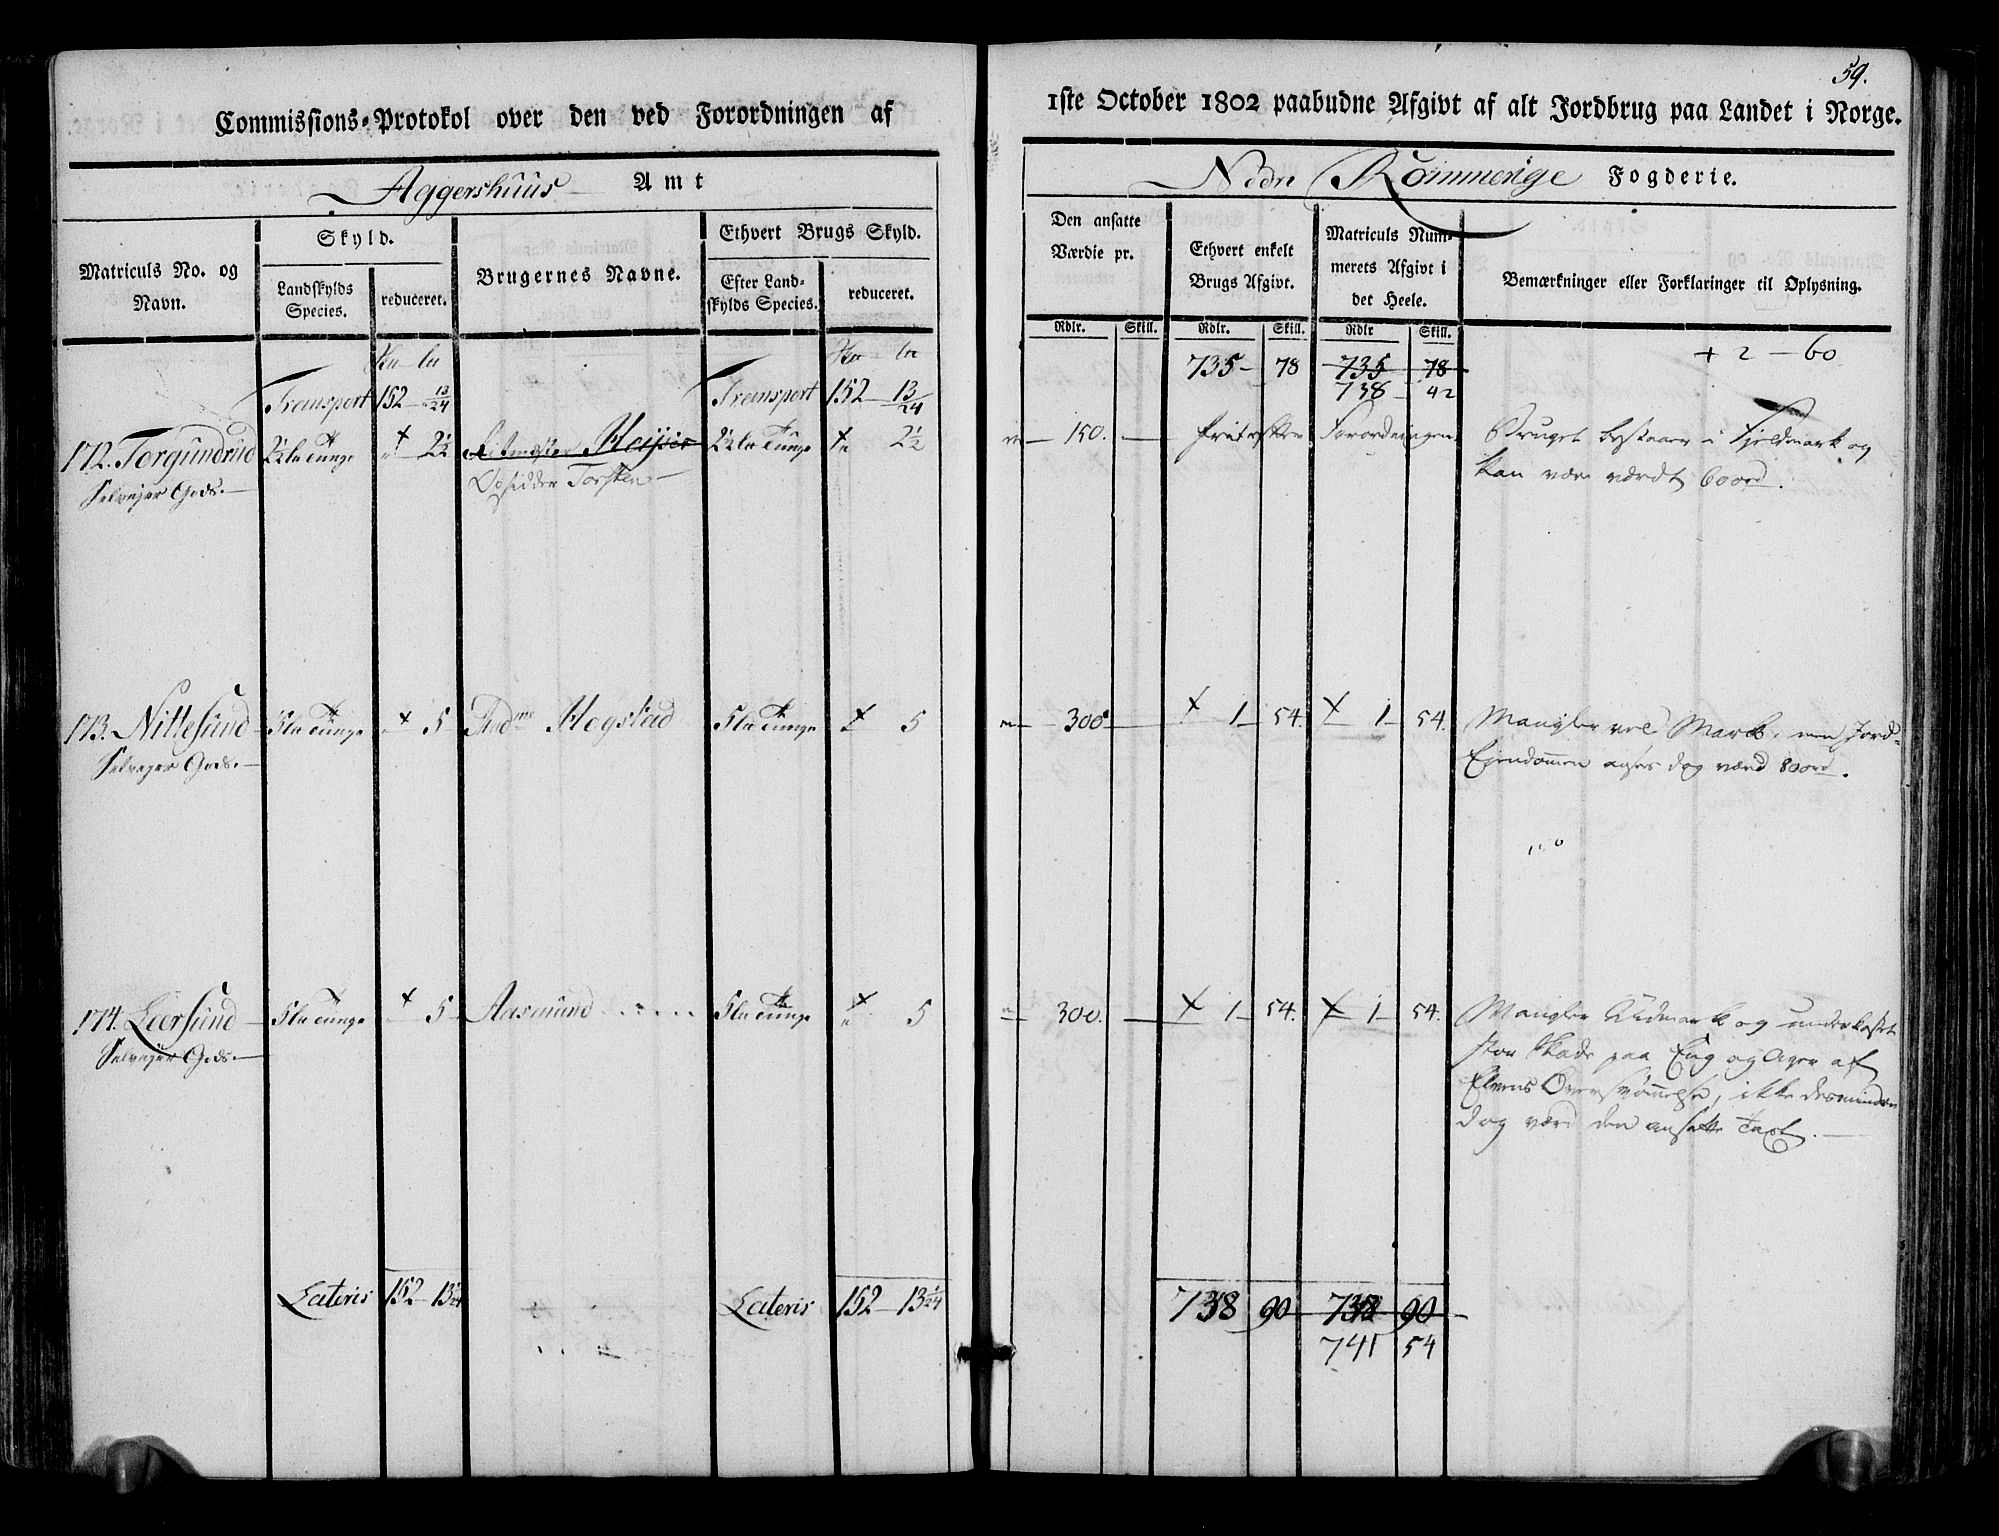 59.
Commissions-Protokol over den ved Forordningen af
1ste October 1802 paabudne Afgivt af alt Jordbrug paa Landet i Norge.
Aggershuus Amt
Nedre Rommerige Fogderie.
Matriculs No. og Navn.
Skyld.
Landskylds Species.
reduceret.
Brugernes Navne.
Ethvert Brugs Skyld.
Efter Landskylds Species.
reduceret.
Den ansatte Værdie pr.
Ethvert enkelt Brugs Afgivt.
Matriculs Nummerets Afgivt i det Heele.
Bemærkninger eller Forklaringer til Oplysning.
Rdlr. Skill. Rdlr. Skill. Rdlr Skill.
Transport 152 13/24 Transport 152 13/24 735 78 735 78 + 2 - 60
738 42
172. Torgundrud 2½ Lu Tunge 2½ Ritmester Meyier 2½ Lu Tunge 2½ 150. fritages efter Forordningen. Bruget bestaaer i Fjeldmark og
Selvejer Gods. Opsidder Torsten kan være værdt 600rd.
173. Nittesund 5 Lu Tunge 5 Fudme Mogstad 5 Lu Tunge 5 300 1 54. 1 54. Mangler vel Mark, men Jord-
Selvejer Gods. Ejendommen agtes dog værd 800rd.
174. Leersund 5 Lu Tunge 5 Aasmund 5 Lu Tunge 5 300. 1 54. 1 54. Mangler Udmark og underkastet
Selvejer Gods. stor Skade paa Eng og Ager af
Elvens Oversvømmelse, ikke desmindre
dog værd den ansatte Taxt.
Lateris 152 13 1/24 Lateris 152 13 1/24 738 90 738 90
741 54